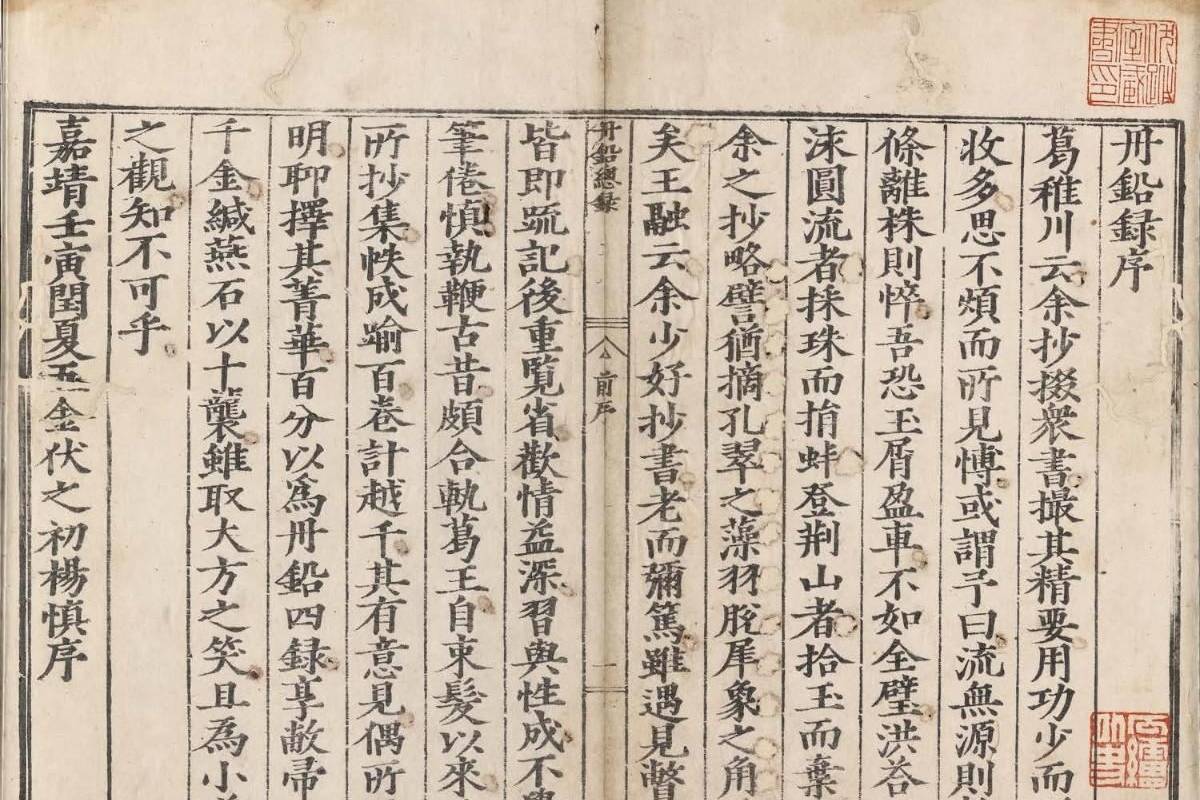 丹鉛録序
葛稚川云余抄掇衆書撮其精要用功少而
收多思不煩而所見博或謂予曰流無源則
條離株則悴吾恐玉屑盈車不如全璧洪荅
泳圓流者採珠而捐蚌登荆山者拾玉而棄
余之抄略譬猶摘孔翠之藻羽脫犀象之角
矣王融云余少好抄書老而彌篤雖遇見瞥
丹鉛總録
前序
一
皆即疏記後重覽省歡情益深習與性成不
筆倦慎執鞭古昔頗合軌葛王自束髮以來
所抄集帙成踰百卷計越千其有意見偶所
明聊擇其菁華百分以為丹鉛四録享敝帚
千金緘燕石以十襲雖取大方之笑且為小
之觀知不可乎
嘉靖壬寅閏夏五金伏之初楊慎序